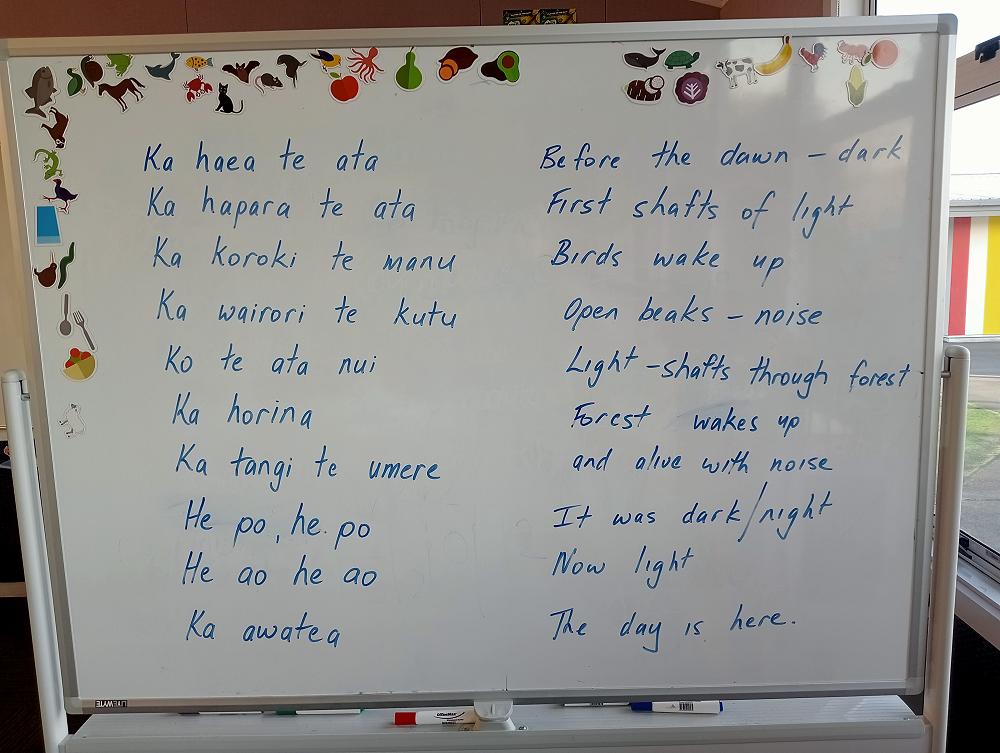 Ka haea te ata
Before the dawn – dark
Ka hapara te ata
First shafts of light
Ka koroki te manu
Birds wake up
Ka wairori te kutu
Open beaks – noise
Ko te ata nui
Light – shafts through forest
Ka horina
Forest wakes up
Ka tangi te umere
and alive with noise
He po, he po
It was dark/night
He ao he ao
Now light
Ka awatea
The day is here.